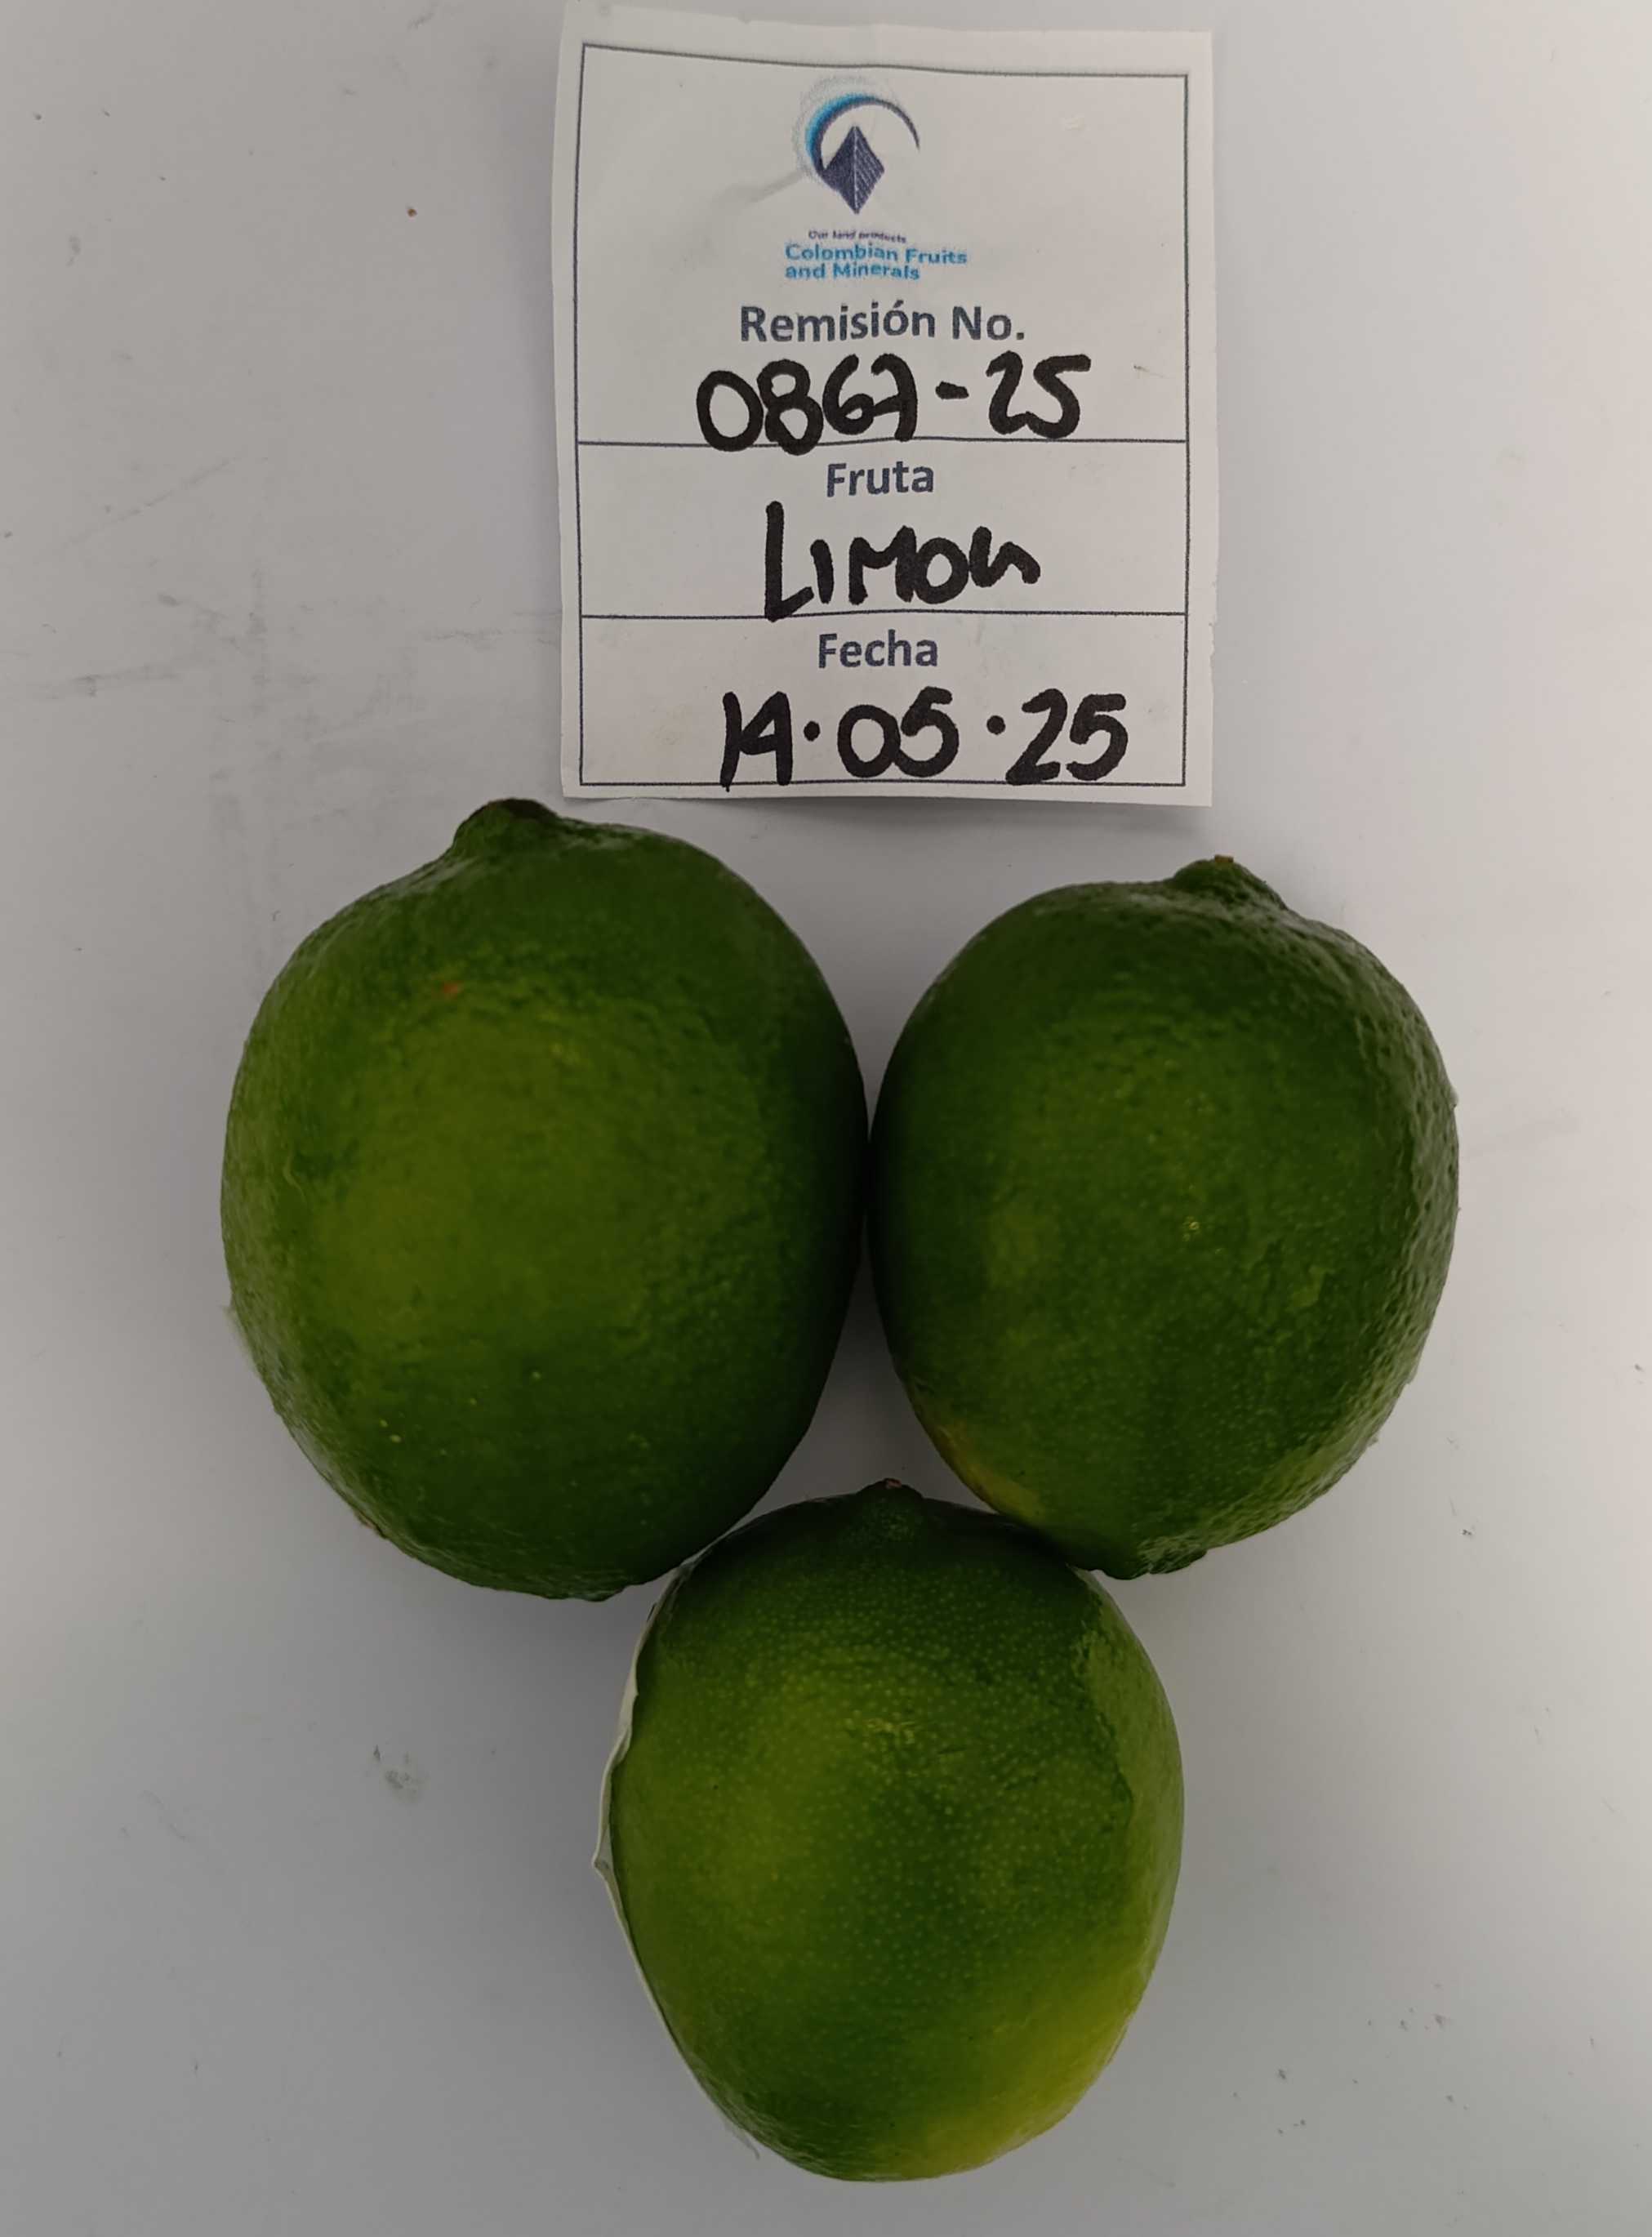 Our land products
Colombian Fruits
and Minerals
Remisión No.
0867-25
Fruta
LIMON
Fecha
14.05.25